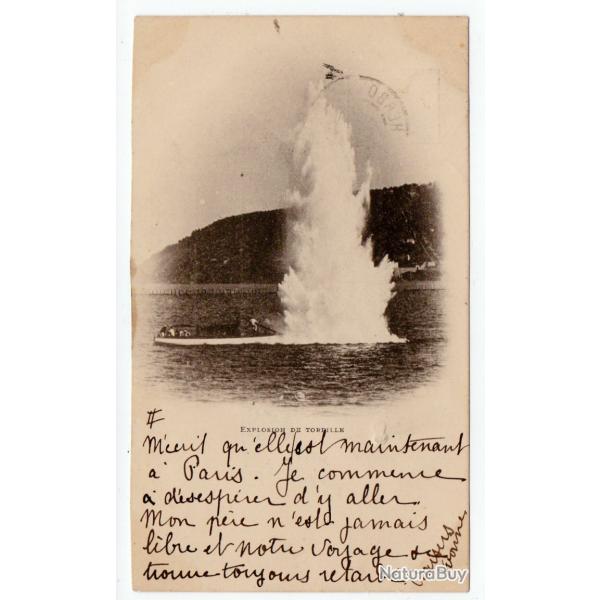 HERBO
EXPLOSION DE TORPILLE
II
M'écrit qu'elle est maintenant
à Paris. Je commence
à désespérer d'y aller.
Mon père n'est jamais
libre et notre voyage se
trouve toujours retardé
NaturaBuy